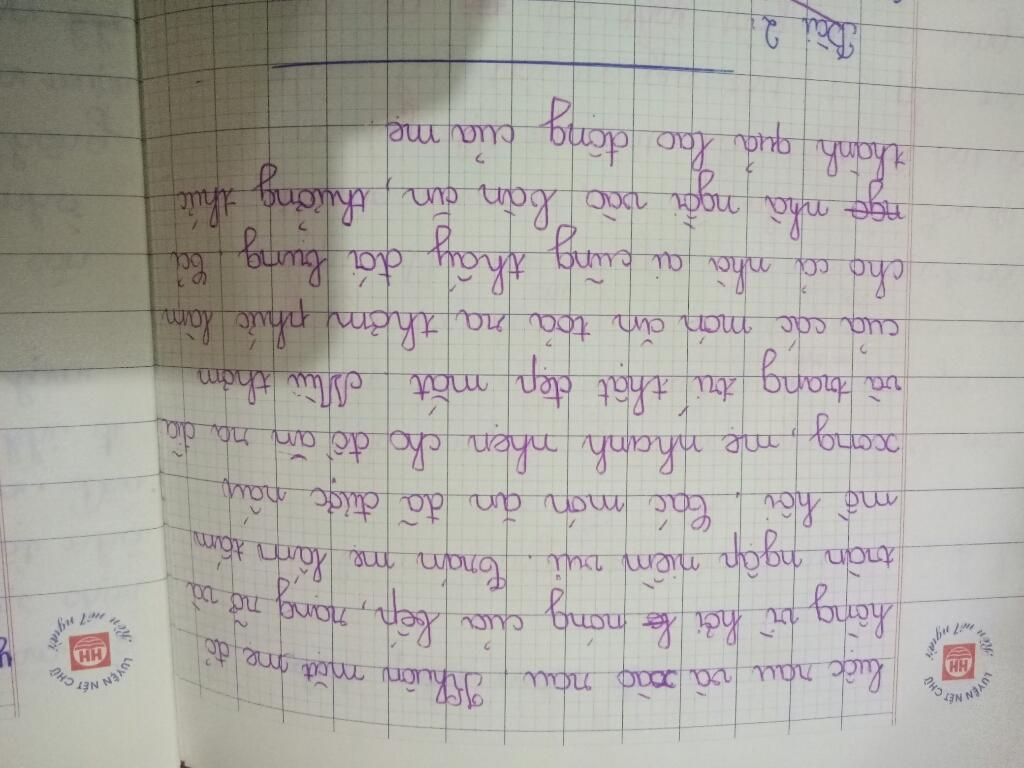 luộc rau và xào rau. Khuôn mặt mẹ đỏ
hồng vì hơi nóng của bếp, rạng rỡ và
tràn ngập niềm vui. Trán mẹ lấm tấm
mồ hôi. Các món ăn đã được nấu
xong, mẹ nhanh nhẹn cho đồ ăn ra đĩa
và trang trí thật đẹp mắt. Mùi thơm
của các món ăn tỏa ra thơm phức làm
cho cả nhà ai cũng thấy đói bụng. Cả
nhà ngồi vào bàn ăn, thưởng thức
thành quả lao động của mẹ
Bài 2:
LUYỆN NÉT CHỮ
Rèn nết người
HH
LUYỆN NÉT CHỮ
Rèn nết người
HH